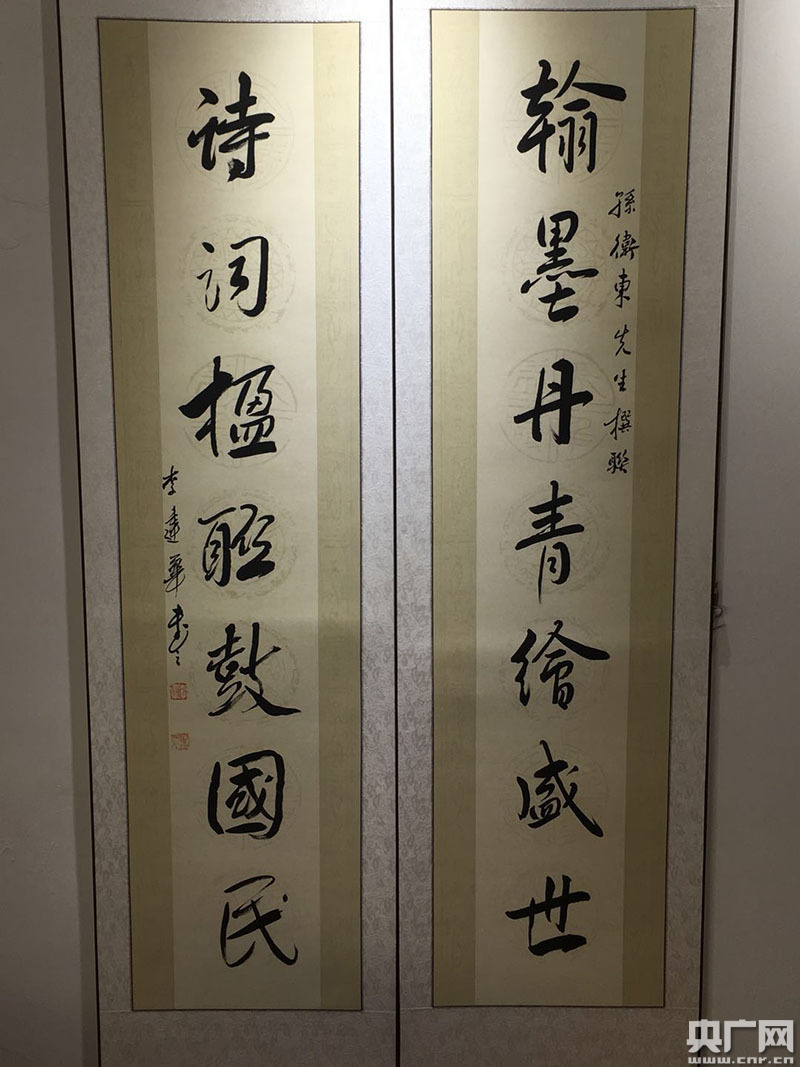 翰墨丹青繪盛世
孫衛東先生撰联
诗词楹联鼓國民
李建華書
央广网
www.cnr.cn